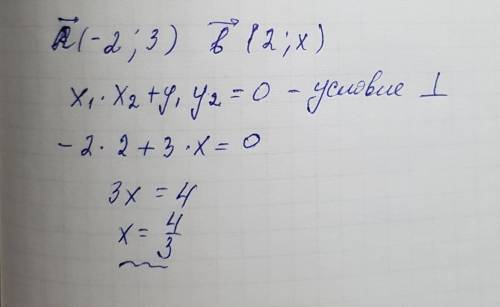 a⃗(-2; 3) b⃗(2; x)
x₁·x₂+y₁y₂=0 - условие ⊥
-2·2+3·x=0
3x=4
x=4/3